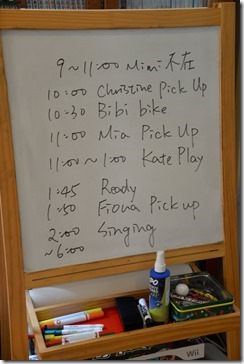 9~11:00 Mimi 不在
10:00 Christine Pick Up
10:30 Bibi bike
11:00 Mia Pick Up
11:00~1:00 Kate Play
1:45 Ready
1:50 Fiona Pick up
2:00 Singing
~6:00
Wii